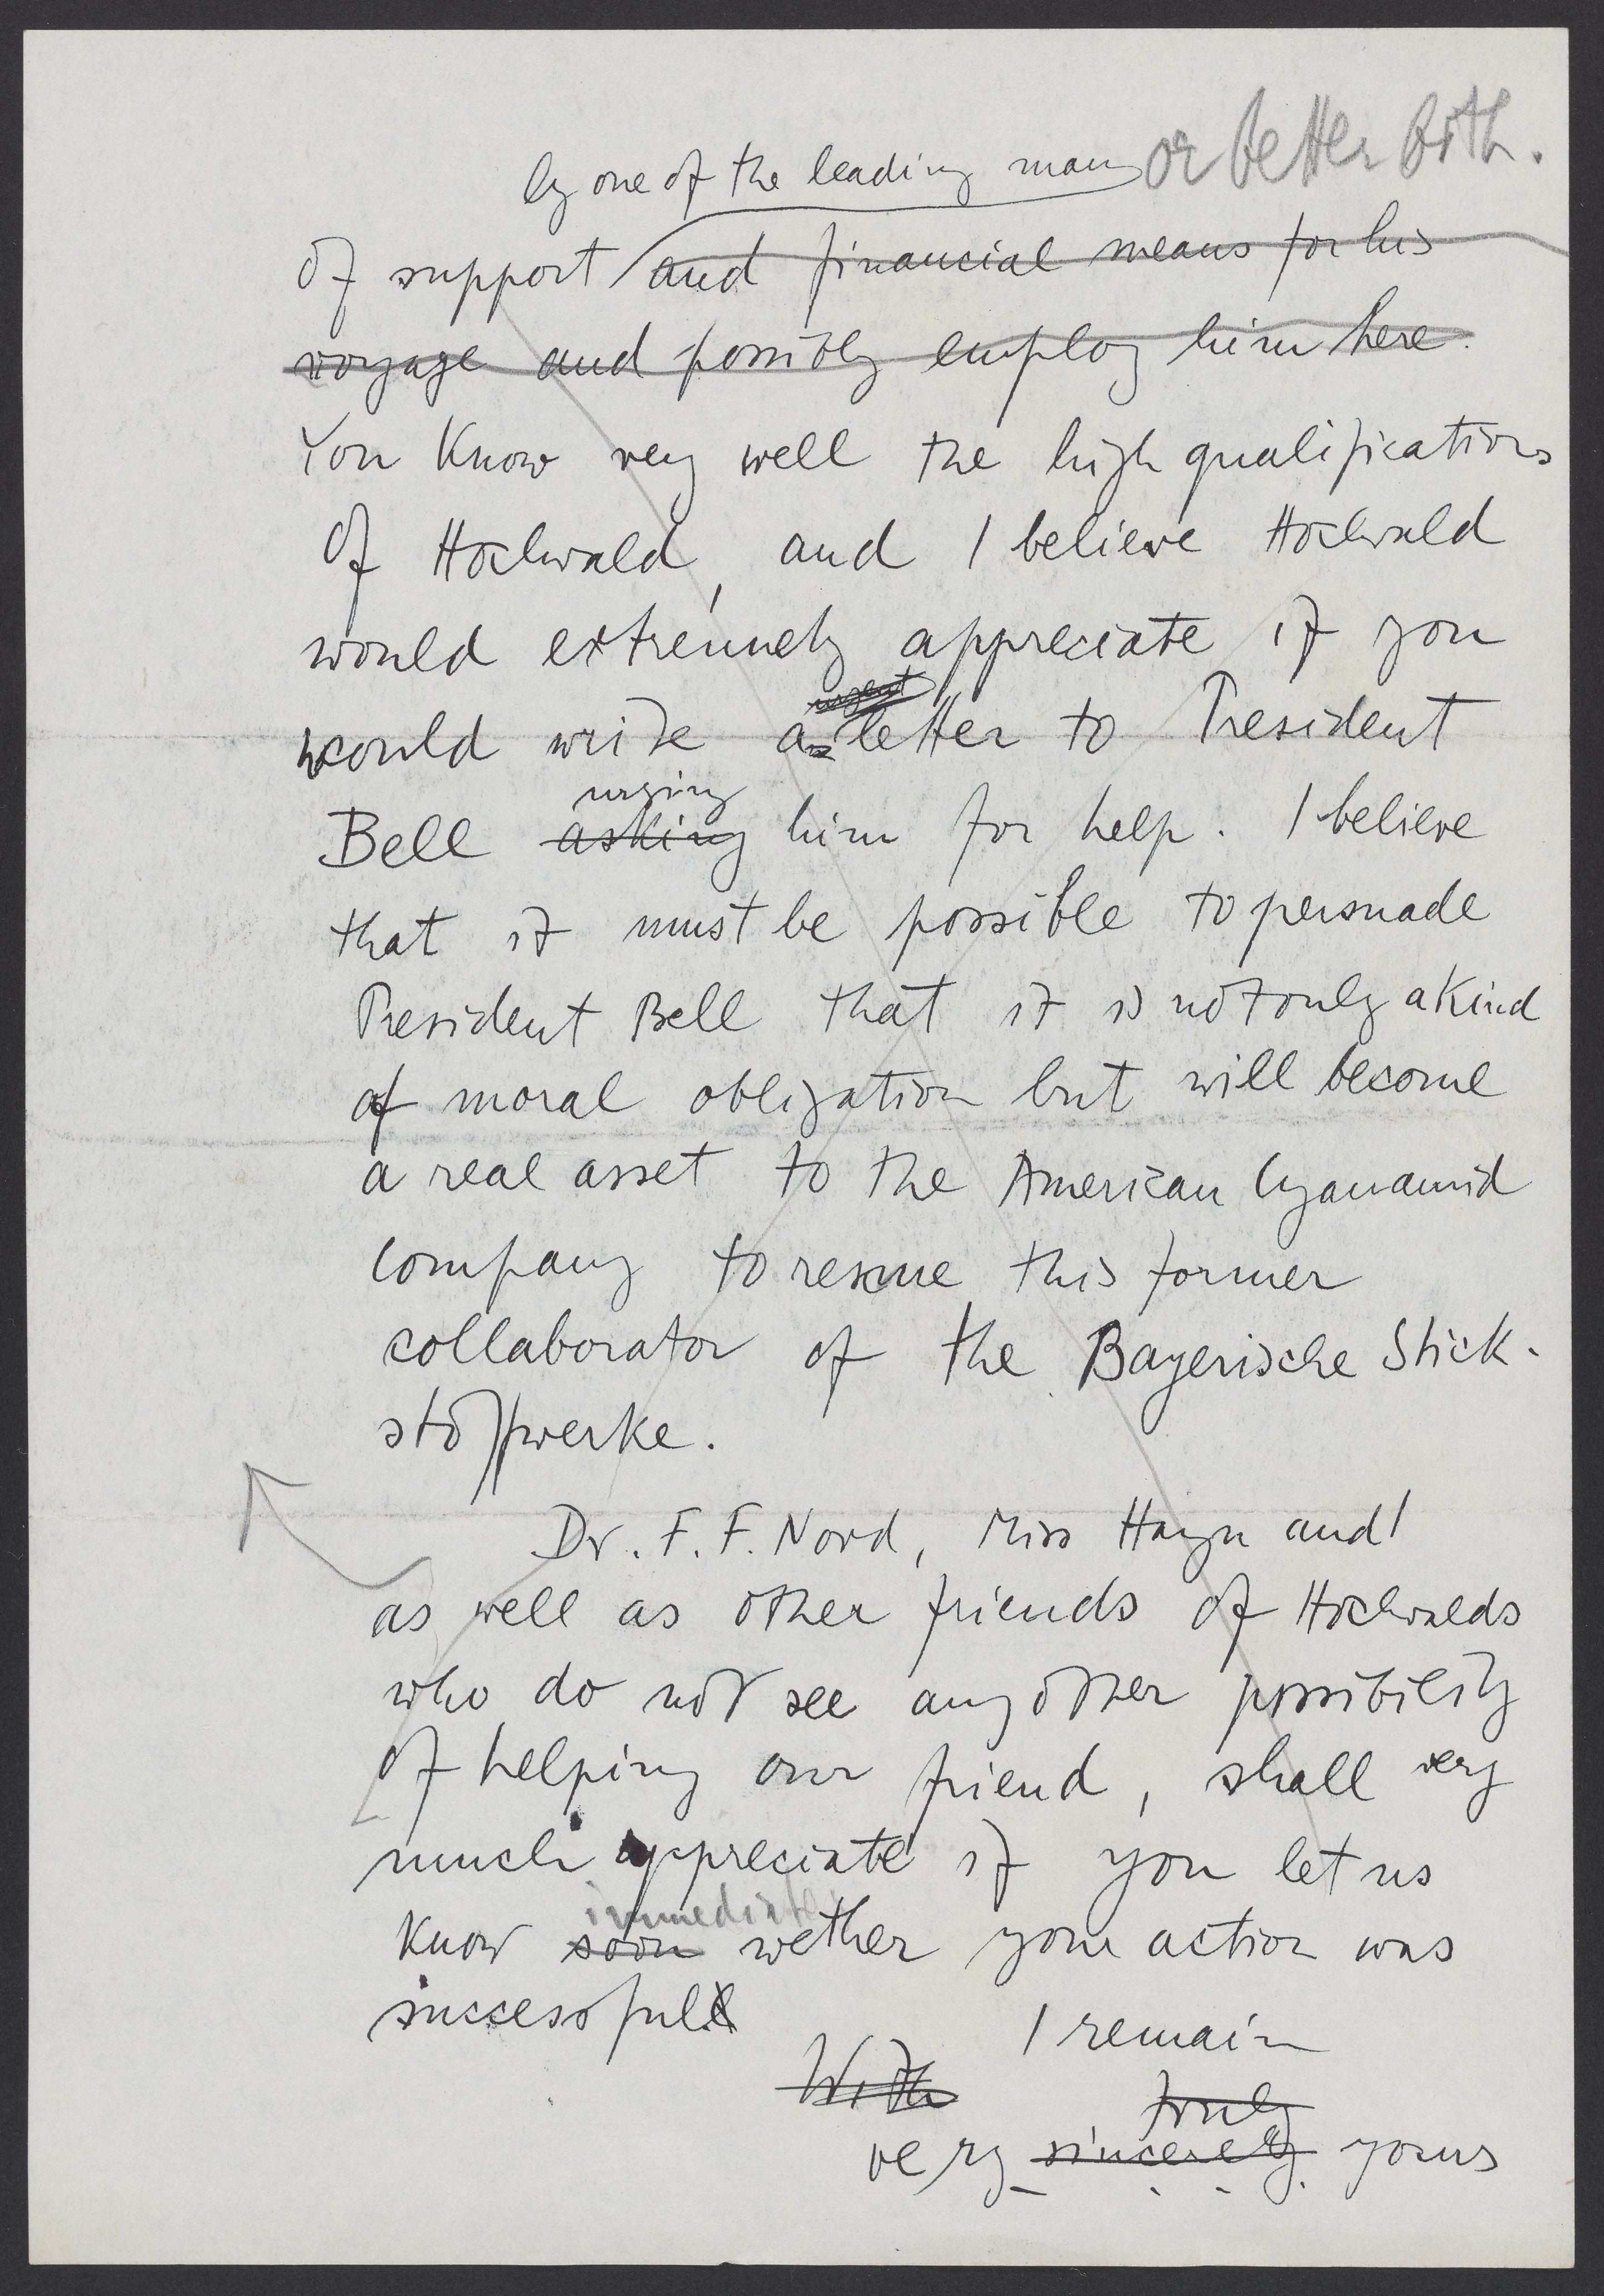 by one of the leading man or better both.
of support and financial means for his
voyage and possibly employ him here.
You know very well the high qualifications
of Hochwald, and I believe Hochwald
would extremely appreciate if you
urgent
would write an letter to President
urging
Bell asking him for help. I believe
that it must be possible to persuade
President Bell that it is not only a kind
of moral obligation but will become
a real asset to the American Cyanamid
Company to rescue this former
collaborator of the Bayerische Stick-
stoffwerke.
Dr. F. F. Nord, Miss Hayn and I
as well as other friends of Hochwalds
who do not see any other possibility
of helping our friend, shall very
much appreciate if you let us
immediately
know soon wether your action was
successfull
I remain
With
truly
very sincerely yours